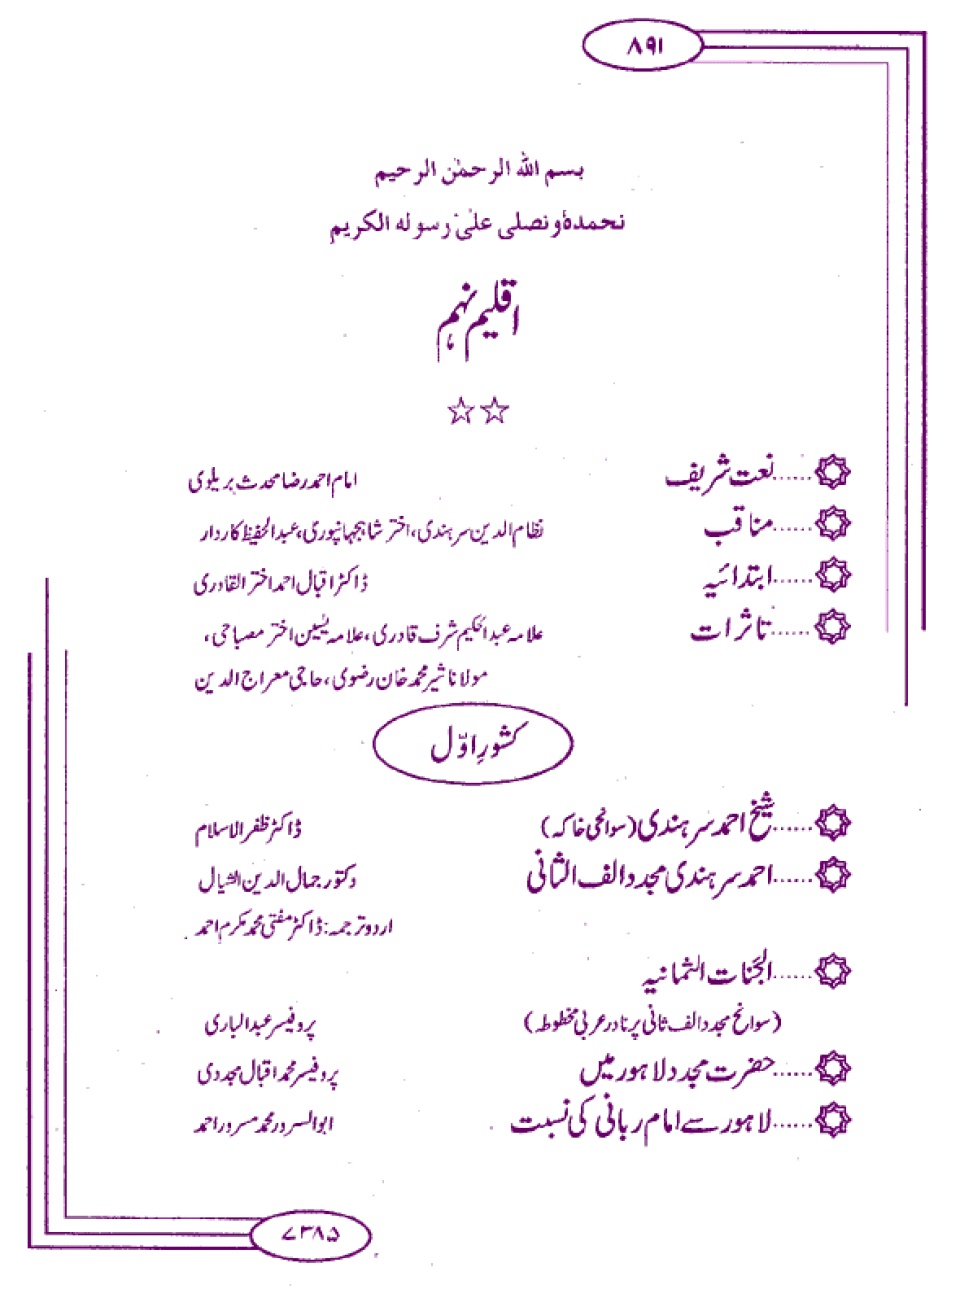 ۸۹۱
بسم الله الرحمٰن الرحیم
نحمدہٗ ونصلی علیٰ رسولہ الکریم
اقلیم نہم
☆☆
......نعت شریف امام احمد رضا محدث بریلوی
......مناقب نظام الدین سرہندی، اختر شاہجہانپوری، عبدالحفیظ کاردار
......ابتدائیہ ڈاکٹر اقبال احمد اختر القادری
......تاثرات علامہ عبدالحکیم شرف قادری، علامہ یٰسین اختر مصباحی،
مولانا شیر محمد خان رضوی، حاجی معراج الدین
کشورِ اوّل
......شیخ احمد سرہندی (سوانحی خاکہ) ڈاکٹر ظفر الاسلام
......احمد سرہندی مجدد الف الثانی دکتور جمال الدین الشیال
اردو ترجمہ: ڈاکٹر مفتی محمد مکرم احمد
......الجنات الثمانیہ
(سوانح مجدد الف ثانی پر نادر عربی مخطوطہ) پروفیسر عبدالباری
......حضرت مجدد لاہور میں پروفیسر محمد اقبال مجددی
......لاہور سے امام ربانی کی نسبت ابوالسرور محمد مسرور احمد